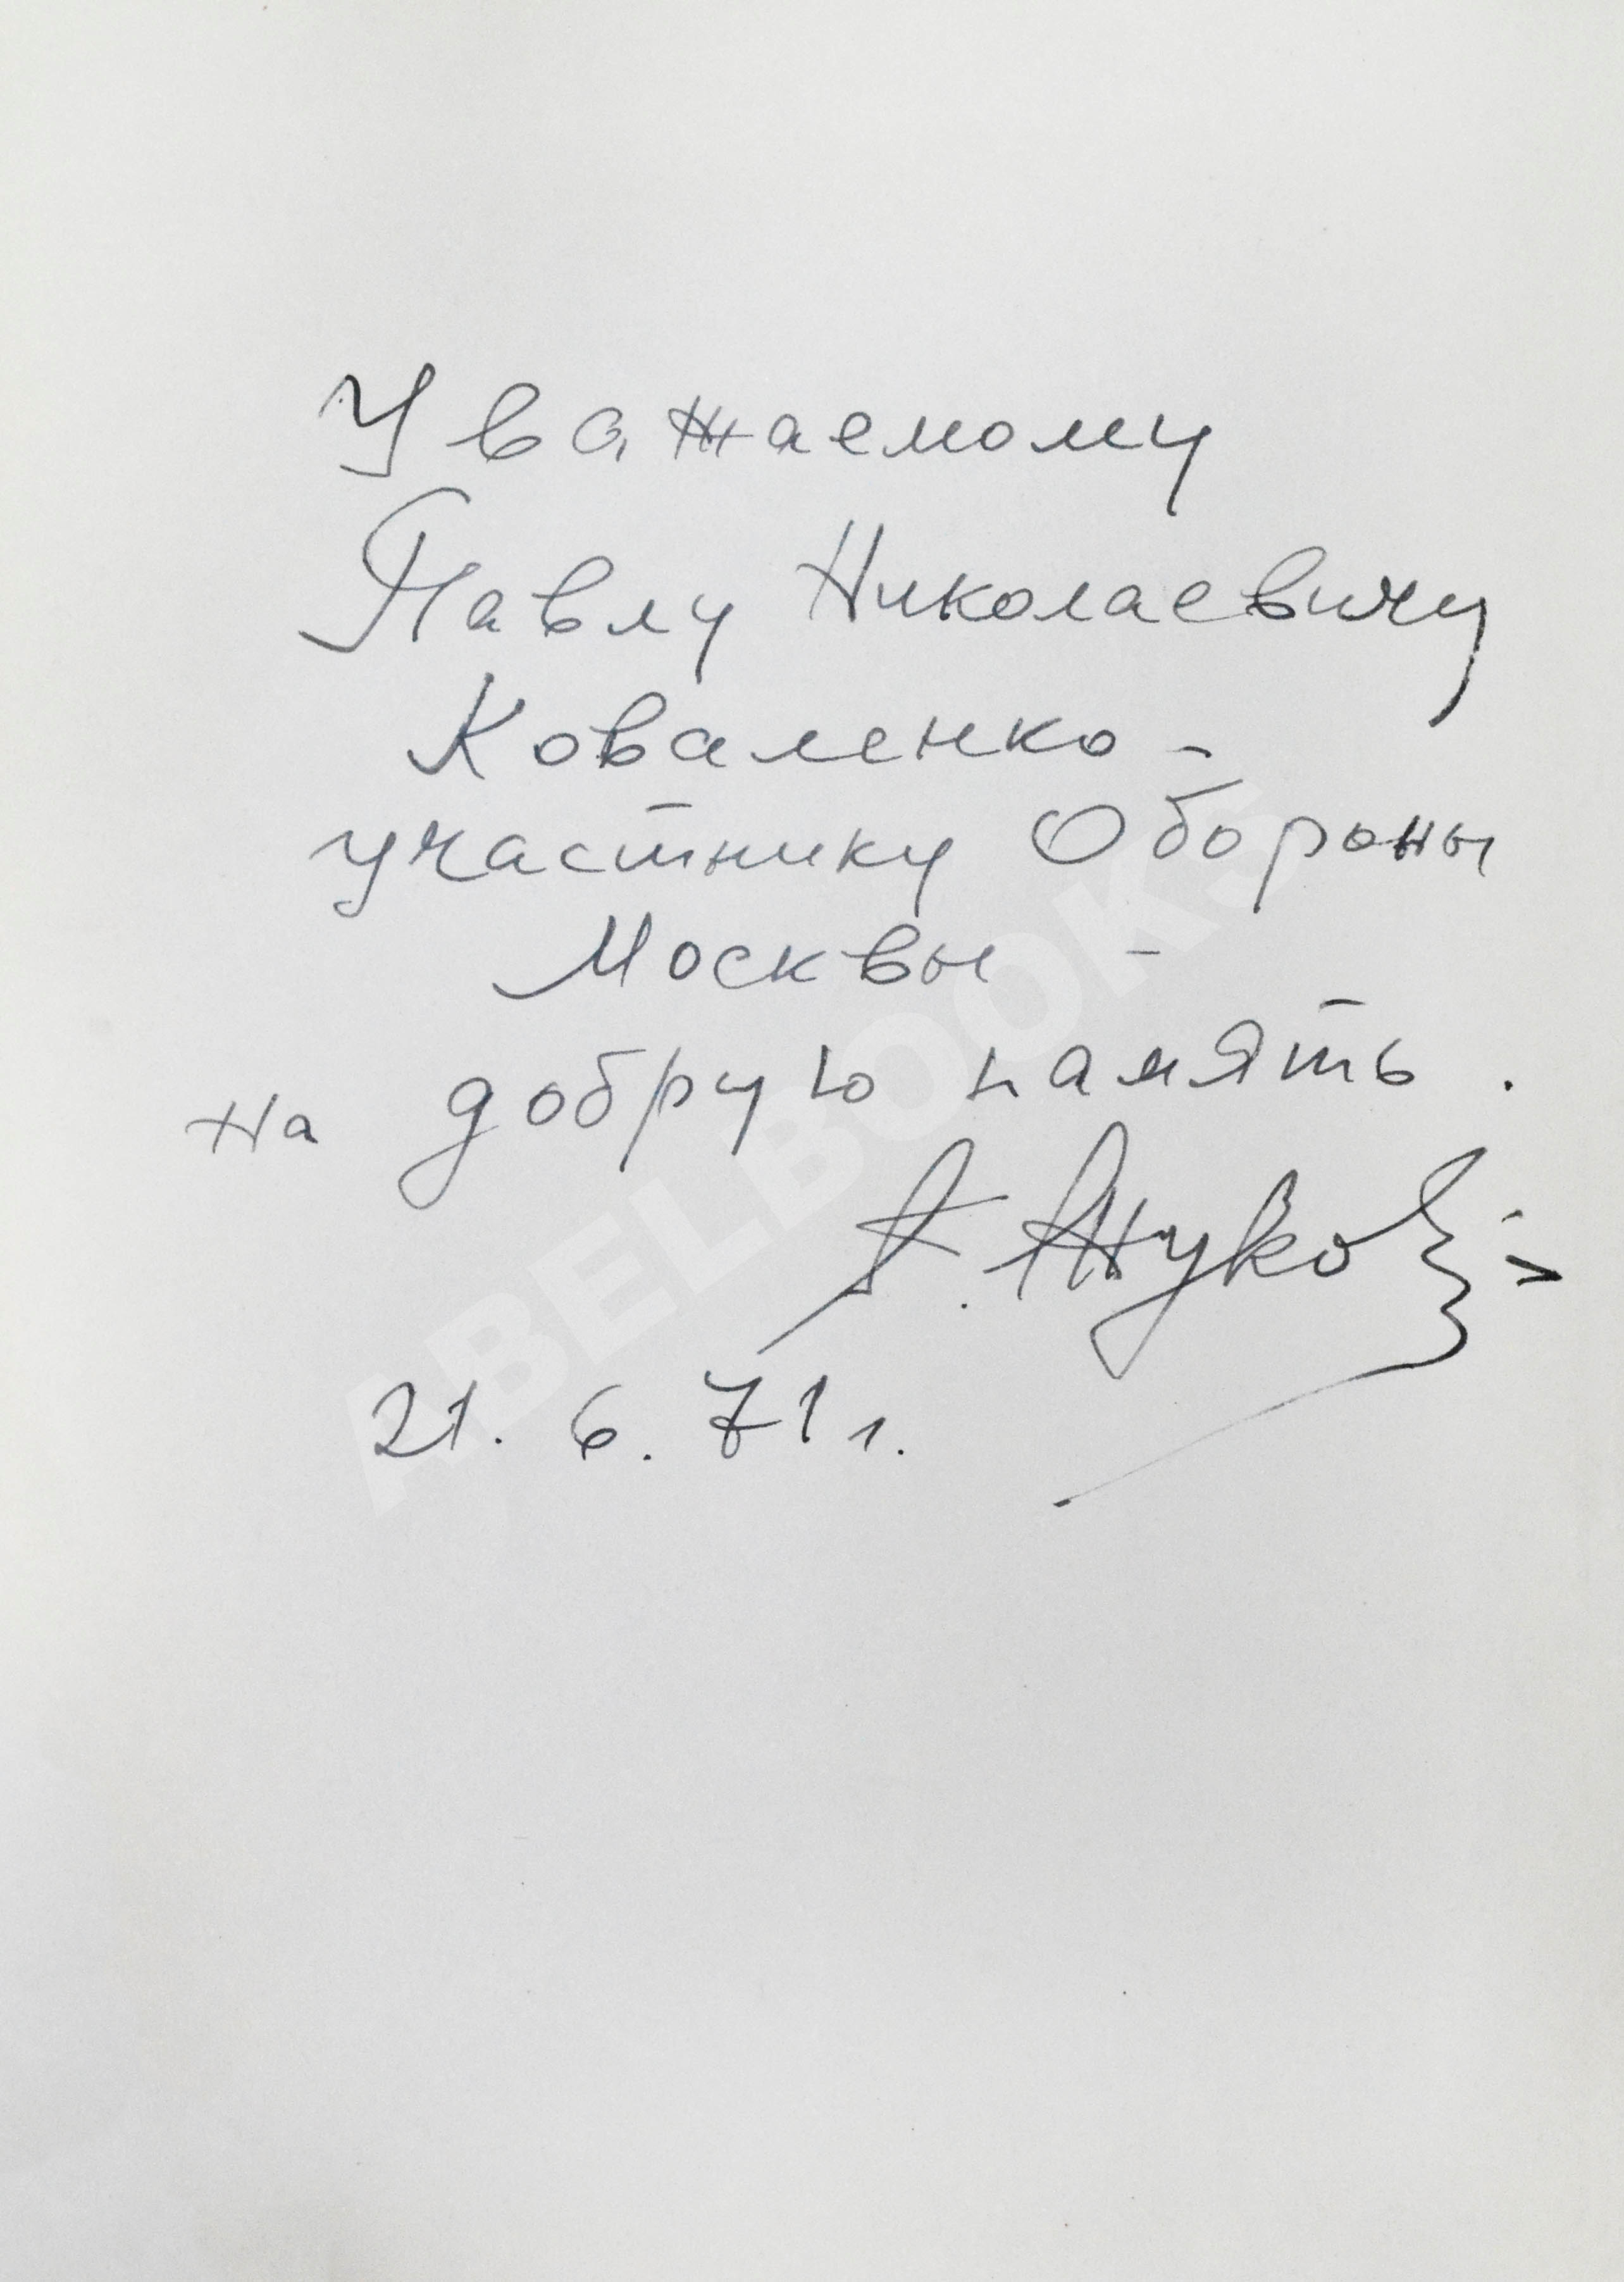 Уважаемому
Павлу Николаевичу
Коваленко -
участнику Обороны
Москвы -
на добрую память.
Г. Жуков
21. 6. 71 г.
ABELBOOKS